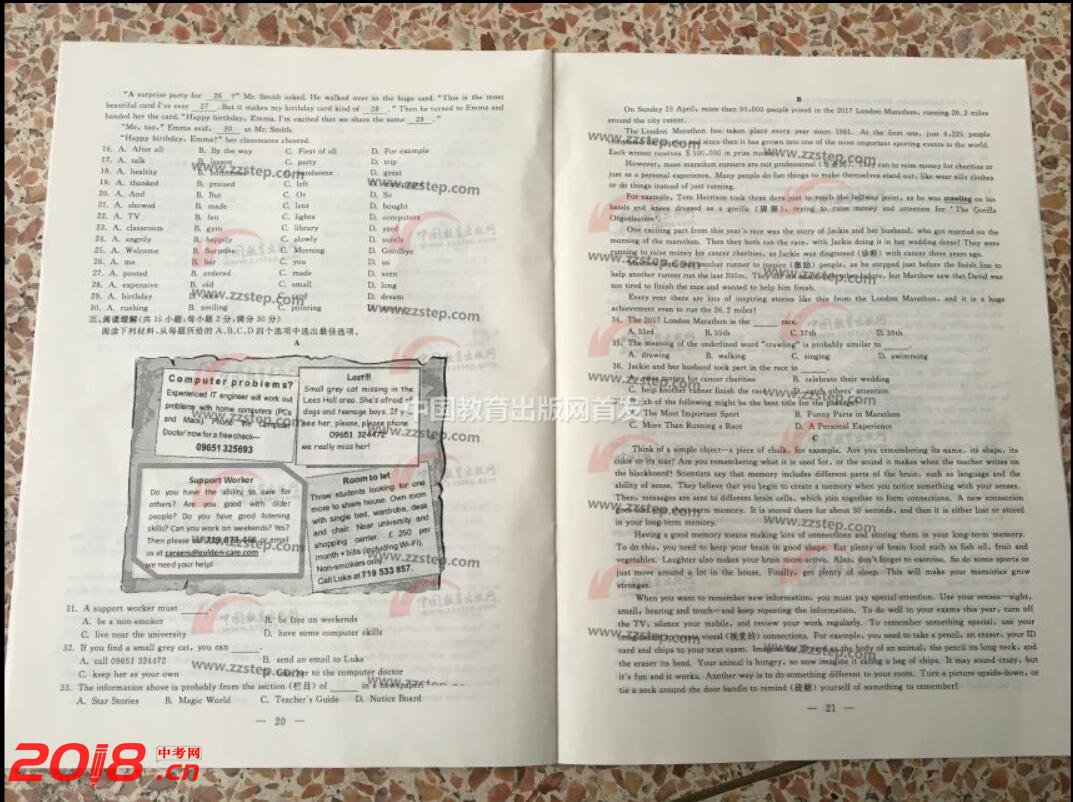 "A surprise party for 26 ?" Mr. Smith asked. He walked over to the huge card. "This is the most
beautiful card I've ever 27 . But it makes my birthday card kind of 28 ." Then he turned to Emma and
handed her the card. "Happy birthday, Emma. I'm excited that we share the same 29 ."
"Me, too," Emma said, 30 at Mr. Smith.
"Happy birthday, Emma!" her classmates cheered.
16. A. After all B. By the way C. First of all D. For example
17. A. talk B. lesson C. party D. trip
18. A. healthy C. handsome D. great
19. A. thanked B. praised C. left
20. A. And B. But C. Or D. So
21. A. showed B. made C. lent D. bought
22. A. TV B. fan C. lights D. computers
23. A. classroom B. gym C. library D. yard
24. A. angrily B. happily C. slowly D. surely
25. A. Welcome B. Surprise C. Morning D. Goodbye
26. A. me B. her C. you D. us
27. A. posted B. ordered C. made D. seen
28. A. expensive B. old C. small D. long
29. A. birthday C. card D. dream
30. A. rushing B. smiling C. pointing
三、阅读理解(共 15 小题,每小题 2 分,满分 30 分)
阅读下列材料,从每题所给的 A、B、C、D 四个选项中选出最佳选项。
A
Computer problems?
Experienced IT engineer will work out
problems with home computers (PCs
and Macs). Phone the Computer
Doctor now for a free check—
09651 325693
Lost!!!
Small grey cat missing in the
Lees Hall area. She's afraid of
dogs and teenage boys. If you
see her, please, please phone
09651 324472
we really miss her!
Support Worker
Do you have the ability to care for
others? Are you good with older
people? Do you have good listening
skills? Can you work on weekends? Yes?
Then please call 719 873 466 or email
us at careers@golden-care.com
we need your help!
Room to let
Three students looking for one
more to share house. Own room
with single bed, wardrobe, desk
and chair. Near university and
shopping center. £ 250 per
month + bills (including Wi-Fi).
Non-smokers only.
Call Luke at 719 533 857.
31. A support worker must
A. be a non-smoker B. be free on weekends
C. live near the university D. have some computer skills
32. If you find a small grey cat, you can .
A. call 09651 324472 B. send an email to Luka
C. keep her as your own D. take her to the computer doctor
33. The information above is probably from the section (栏目) of in a newspaper.
A. Star Stories B. Magic World C. Teacher's Guide D. Notice Board
— 20 —
B
On Sunday 23 April, more than 30,000 people joined in the 2017 London Marathon, running 26.2 miles
around the city center.
The London Marathon has taken place every year since 1981. At the first one, just 6,225 people
completed the race and since then it has grown into one of the most important sporting events in the world.
Each winner receives $ 100,000 in prize money.
However, most marathon runners are not professional. They ran to raise money for charities or
just as a personal experience. Many people do fun things to make themselves stand out, like wear silly clothes
or do things instead of just running.
For example, Tom Harrison took three days just to reach the halfway point, as he was crawling on his
hands and knees dressed as a gorilla (猩猩), trying to raise money and attention for "The Gorilla
Organisation".
One exciting part from this year's race was the story of Jackie and her husband, who got married on the
morning of the marathon. Then they both ran the race, with Jackie doing it in her wedding dress! They were
running to raise money for cancer charities, as Jackie was diagnosed (诊断) with cancer three years ago.
another runner to inspire (激励) people, as he stopped just before the finish line to
help another runner run the last 200m. They did not know each other before, but Matthew saw that David was
too tired to finish the race and wanted to help him finish.
Every year there are lots of inspiring stories like this from the London Marathon, and it is a huge
achievement even to run the 26.2 miles!
34. The 2017 London Marathon is the race.
A. 33rd B. 35th C. 37th D. 39th
35. The meaning of the underlined word "crawling" is probably similar to .
A. drawing B. walking C. singing D. swimming
36. Jackie and her husband took part in the race to .
A. raise money for cancer charities B. celebrate their wedding
C. help another runner finish the race D. catch others' attention
37. Which of the following might be the best title for the passage?
A. The Most Important Sport B. Funny Parts in Marathon
C. More Than Running a Race D. A Personal Experience
C
Think of a simple object—a piece of chalk, for example. Are you remembering its name, its shape, its
color or its size? Are you remembering what it is used for, or the sound it makes when the teacher writes on
the blackboard? Scientists say that memory includes different parts of the brain, such as language and the
ability of sense. They believe that you begin to create a memory when you notice something with your senses.
Then, messages are sent to different brain cells, which join together to form connections. A new connection
goes into your short-term memory. It is stored there for about 30 seconds, and then it is either lost or stored
in your long-term memory.
Having a good memory means making lots of connections and storing them in your long-term memory.
To do this, you need to keep your brain in good shape. Eat plenty of brain food such as fish oil, fruit and
vegetables. Laughter also makes your brain more active. Also, don't forget to exercise. Go do some sports or
just move around a lot in the house. Finally, get plenty of sleep. This will make your memories grow
stronger.
When you want to remember new information, you must pay special attention. Use your senses—sight,
smell, hearing and touch—and keep repeating the information. To do well in your exams this year, turn off
the TV, silence your mobile, and review your work regularly. To remember something special, use your
imagination to create visual (视觉的) connections. For example, you need to take a pencil, an eraser, your ID
card and chips to your next exam. Imagine the ID card as the body of an animal, the pencil its long neck, and
the eraser its head. Your animal is hungry, so now imagine it eating a bag of chips. It may sound crazy, but
it's fun and it works. Another way is to do something different to your room. Turn a picture upside-down, or
tie a sock around the door handle to remind (提醒) yourself of something to remember!
— 21 —
中国教育出版网首发
www.zzstep.com
2018中考网.cn